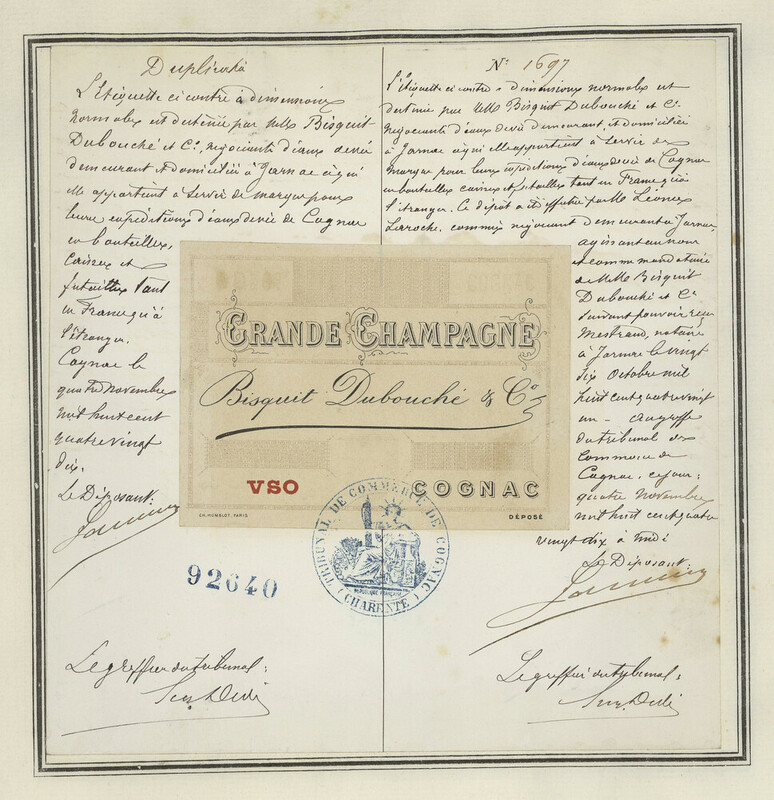 Duplicata
L'Etiquette ci contre à dimensions
normales est destinée par MMrs Bisquit
Dubouché et Cie, négociants d'eaux de vie
demeurant et domiciliés à Jarnac à qui
elle appartient à servir de marque pour
leurs expéditions d'eaux de vie de Cognac
en bouteilles,
caisses et
futailles tant
en France qu'à
l'étranger.
Cognac le
quatre novembre
mil huit cent
quatre vingt
dix.
Le Déposant:
Le greffier du tribunal:
No 1697
L'étiquette ci contre à dimensions normales est
destinée par MM Bisquit Dubouché et Cie
négociants d'eaux de vie demeurant et domiciliés
à Jarnac à qui elle appartient à servir de
marque pour leurs expéditions d'eaux de vie de Cognac
en bouteilles caisses et futailles tant en France qu'à
l'étranger. Ce dépôt a été effectué par Mr
Laroche, commis négociant demeurant à Jarnac
agissant au nom
et comme mandataire
de MM. Bisquit
Dubouché et Cie
suivant pouvoir reçu
Mestraud, notaire
à Jarnac le vingt
six octobre mil
huit cent quatre vingt
un - au greffe
du tribunal de
Commerce de
Cognac, ce jour:
quatre novembre
mil huit cent quatre
vingt dix à midi
Le Déposant:
Le greffier du tribunal:
GRANDE CHAMPAGNE
Bisquit Dubouché & Co
VSO COGNAC
CH. HUMBLOT, PARIS DÉPOSÉ
TRIBUNAL DE COMMERCE DE COGNAC
RÉPUBLIQUE FRANÇAISE
(CHARENTE)
92640